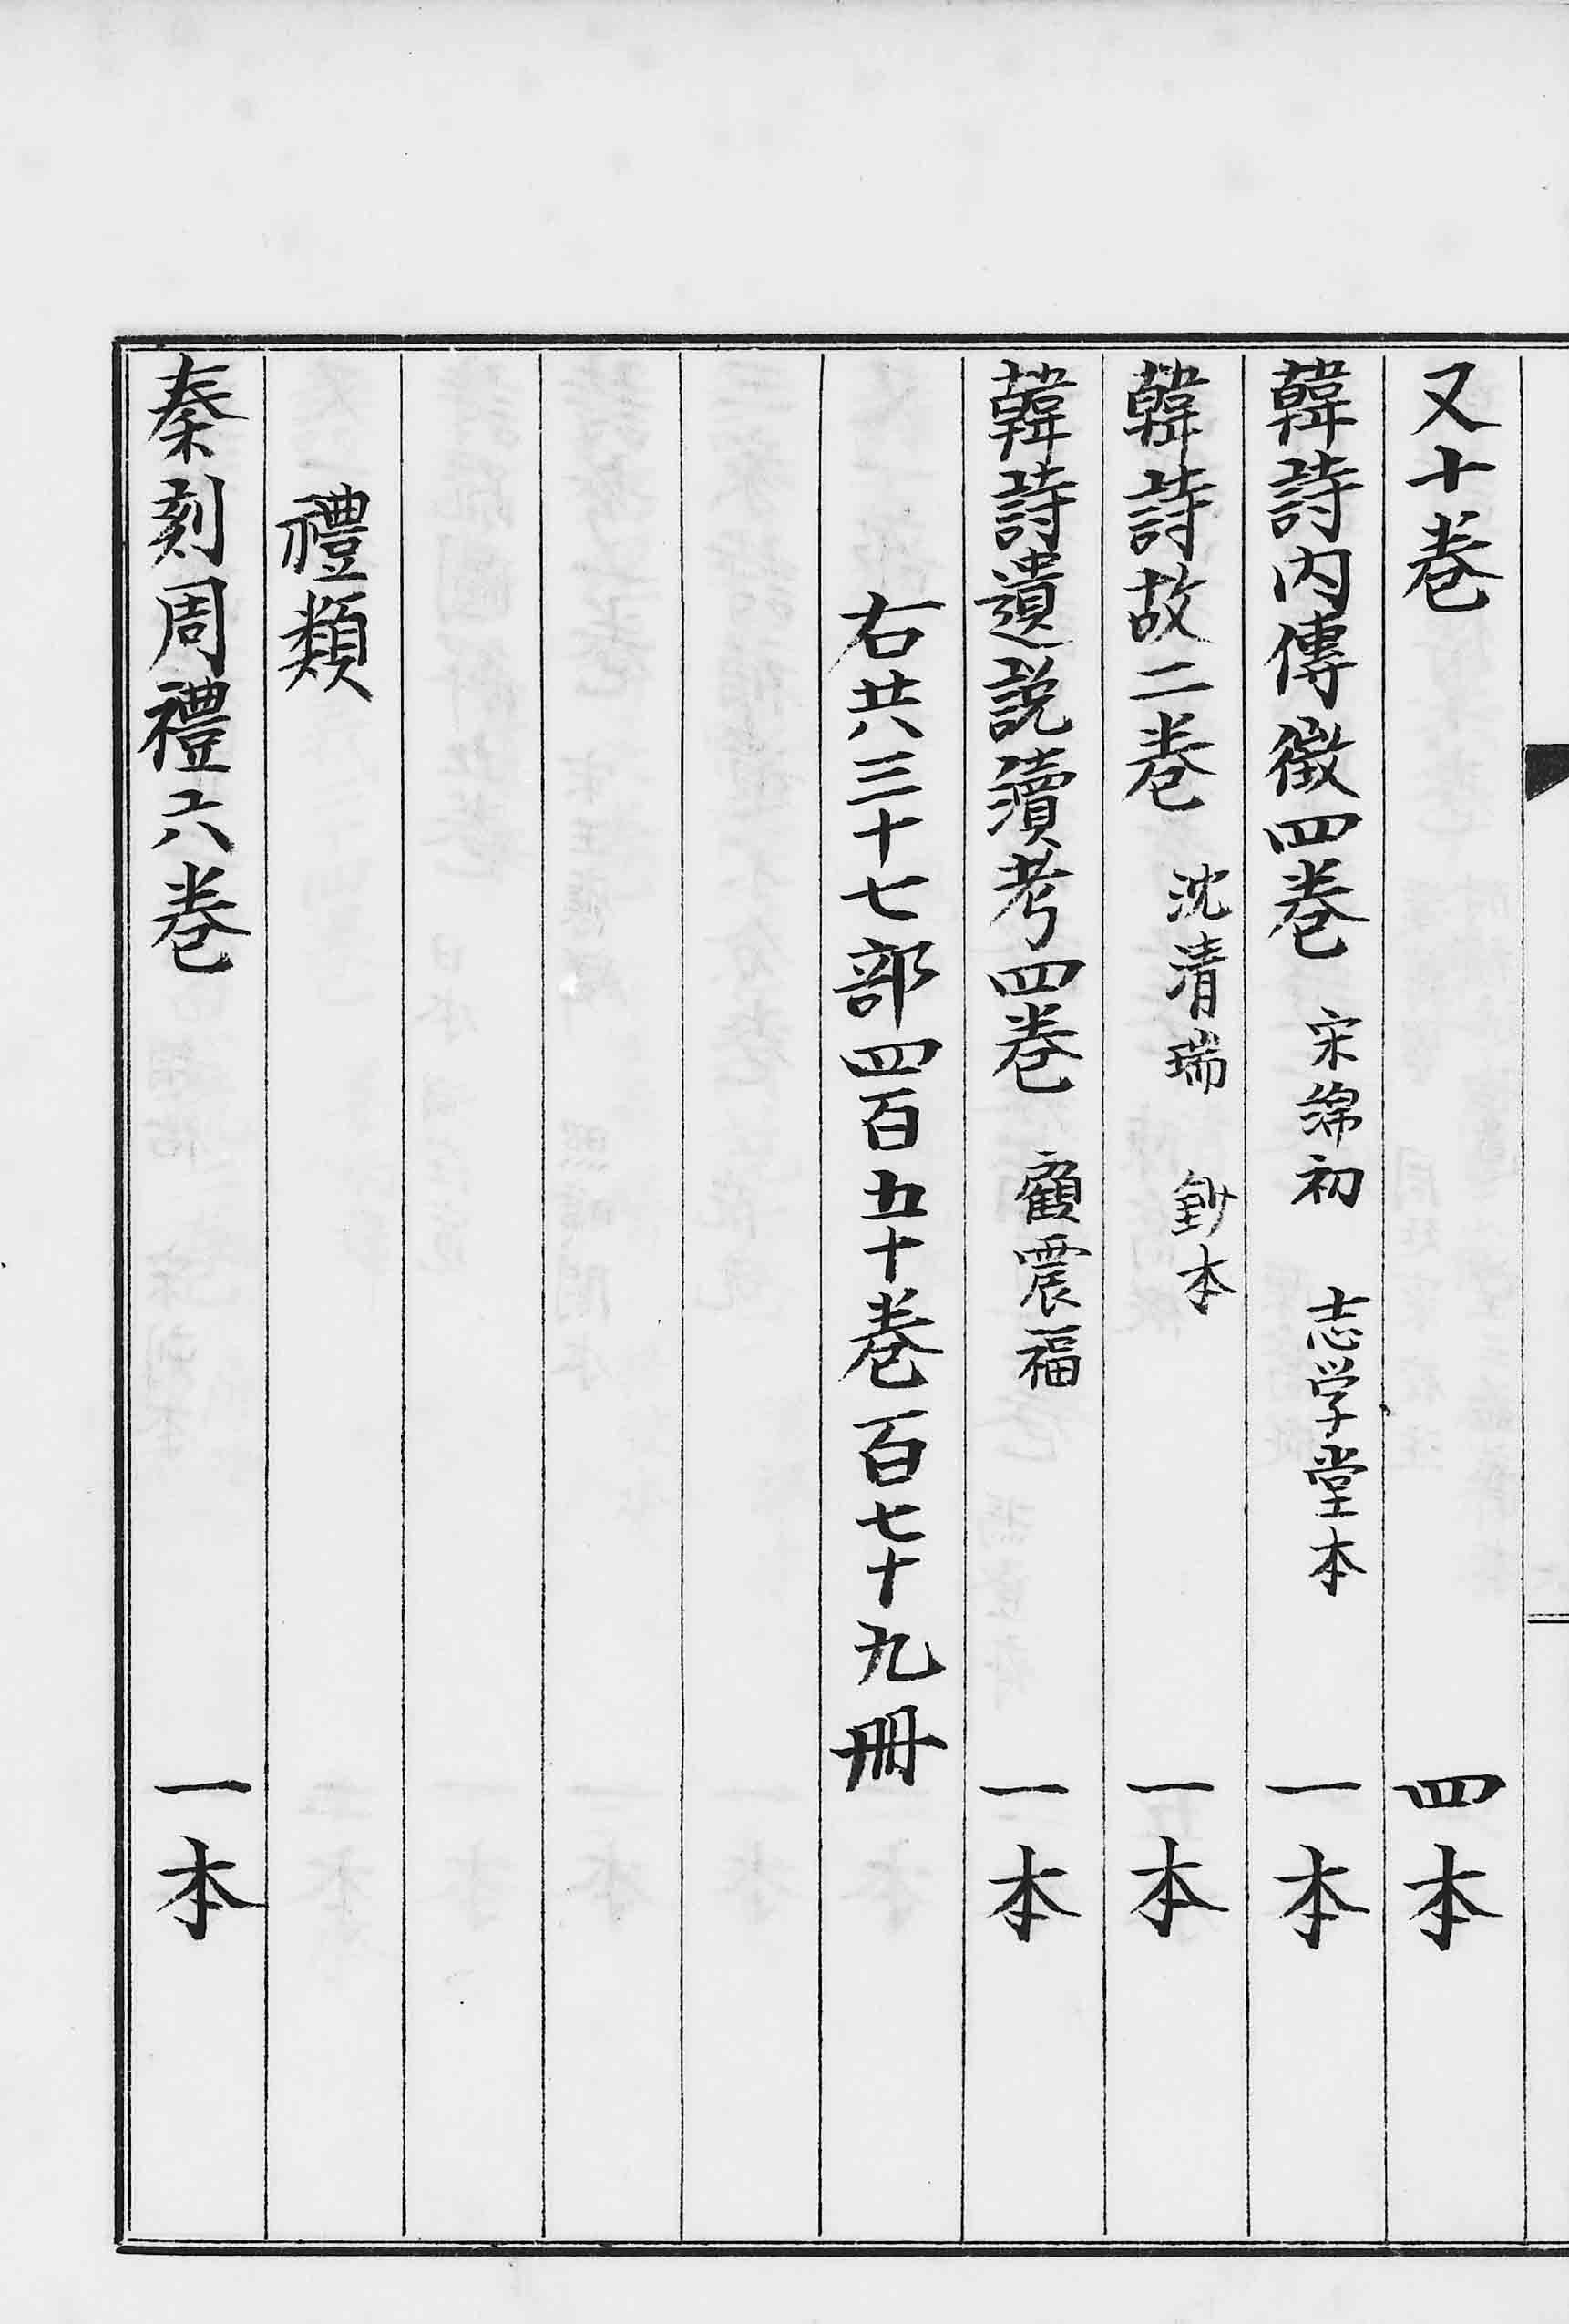 又十卷 四本
韓詩内傳徵四卷 宋綿初 志学堂本 一本
韓詩故二卷 沈清瑞 鈔本 一本
韓詩遺説續考四卷 顧震福 一本
右共三十七部四百五十卷百七十九冊
禮類
秦刻周禮六卷 一本